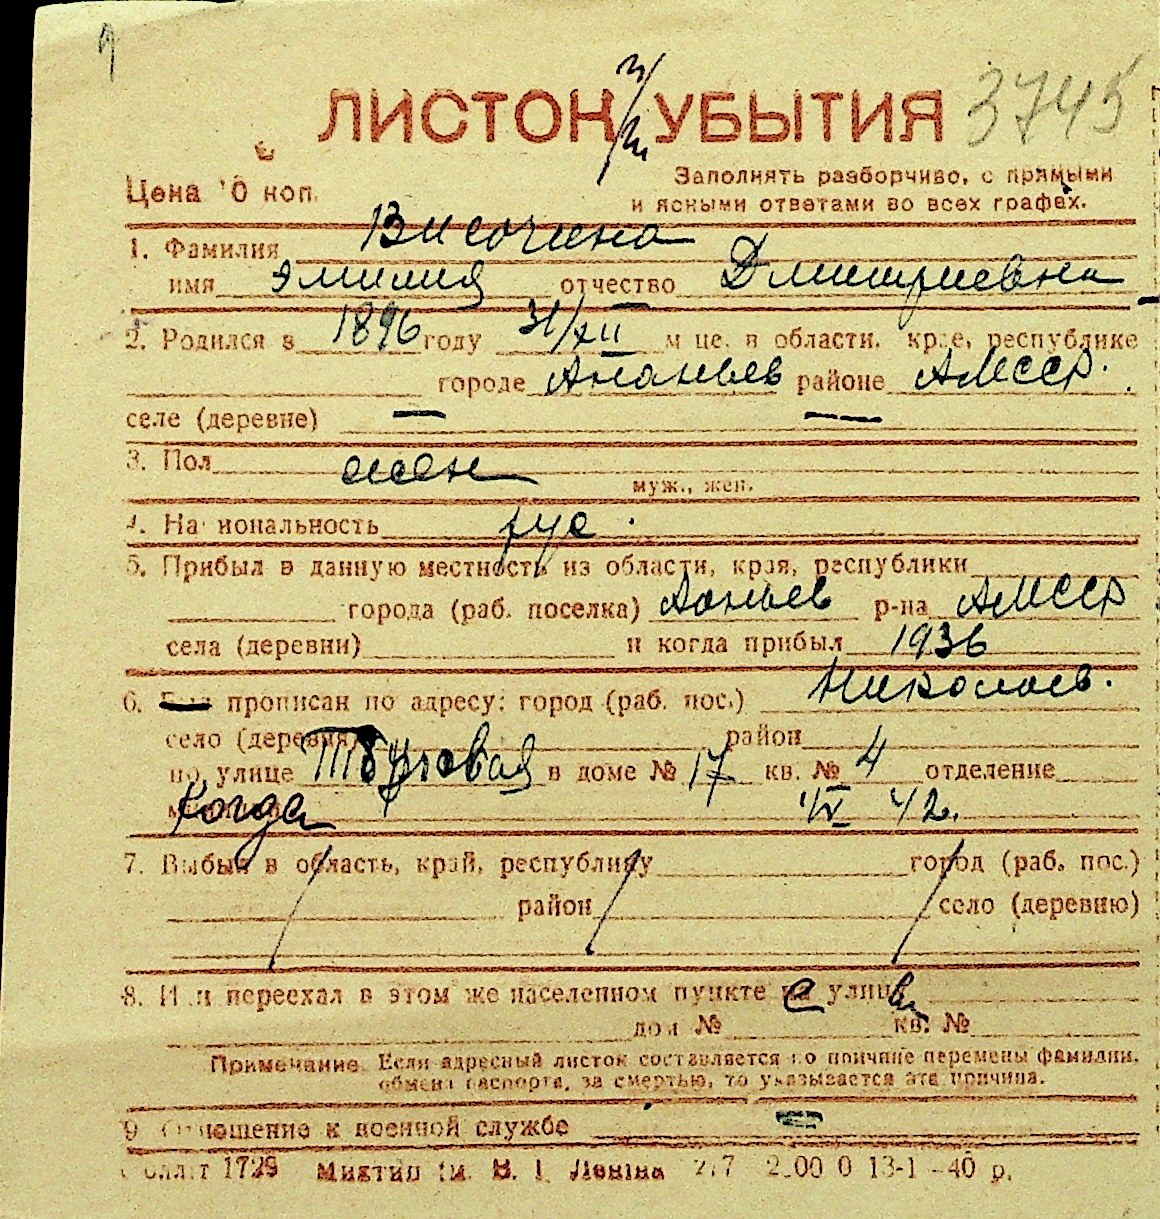 ЛИСТОК УБЫТИЯ 3745
Цена 10 коп.
Заполнять разборчиво, с прямыми
и ясными ответами во всех графах.
1. Фамилия Височина
имя Эмилия отчество Дмитриевна
2. Родился в 1896 году 31/XII м це. в области, крае, республике
городе Ананьев районе АМССР.
селе (деревне) —
3. Пол жен
муж., жен.
4. Национальность рус.
5. Прибыл в данную местность из области, края, республики
города (раб. поселка) Ааньев р-на АМССР
села (деревни) и когда прибыл 1936
6. Был прописан по адресу: город (раб. пос.) Николаев.
село (деревня) район
по улице в доме № 17 кв. № 4 отделение
Когда IV 42.
7. Выбыл в область, край, республику город (раб. пос.)
район село (деревню)
8. Или переехал в этом же населенном пункте на улицу
дом № кв. №
Примечание. Если адресный листок составляется по причине перемены фамилии,
обмена паспорта, за смертью, то указывается эта причина.
9. Отношение к военной службе
1729 Миктип им. В. І. Леніна 13-1 -40 р.